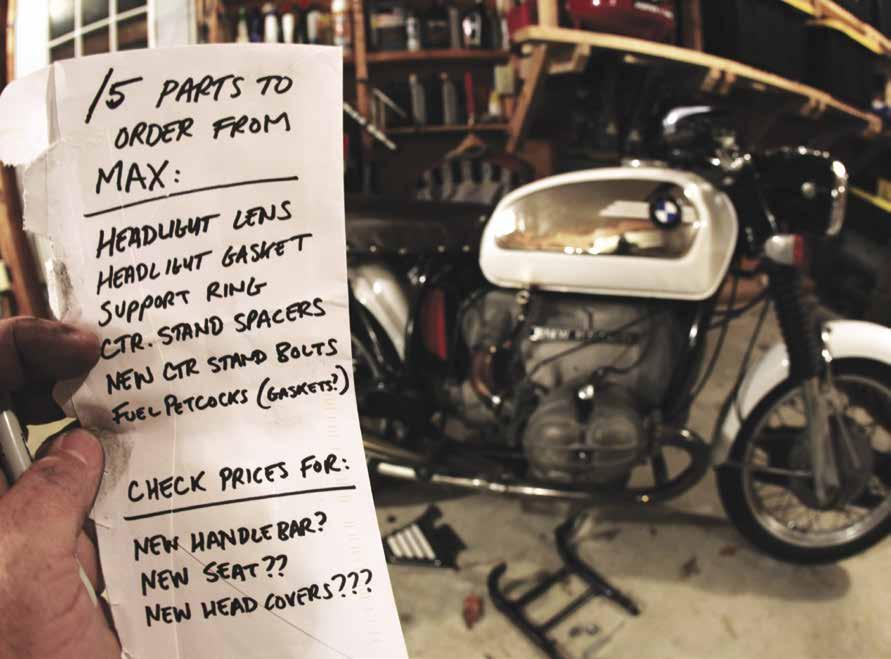 /5 PARTS TO
ORDER FROM
MAX:
HEADLIGHT LENS
HEADLIGHT GASKET
SUPPORT RING
CTR. STAND SPACERS
NEW CTR STAND BOLTS
FUEL PETCOCKS (GASKETS?)
CHECK PRICES FOR:
NEW HANDLEBAR?
NEW SEAT??
NEW HEAD COVERS???
BMW